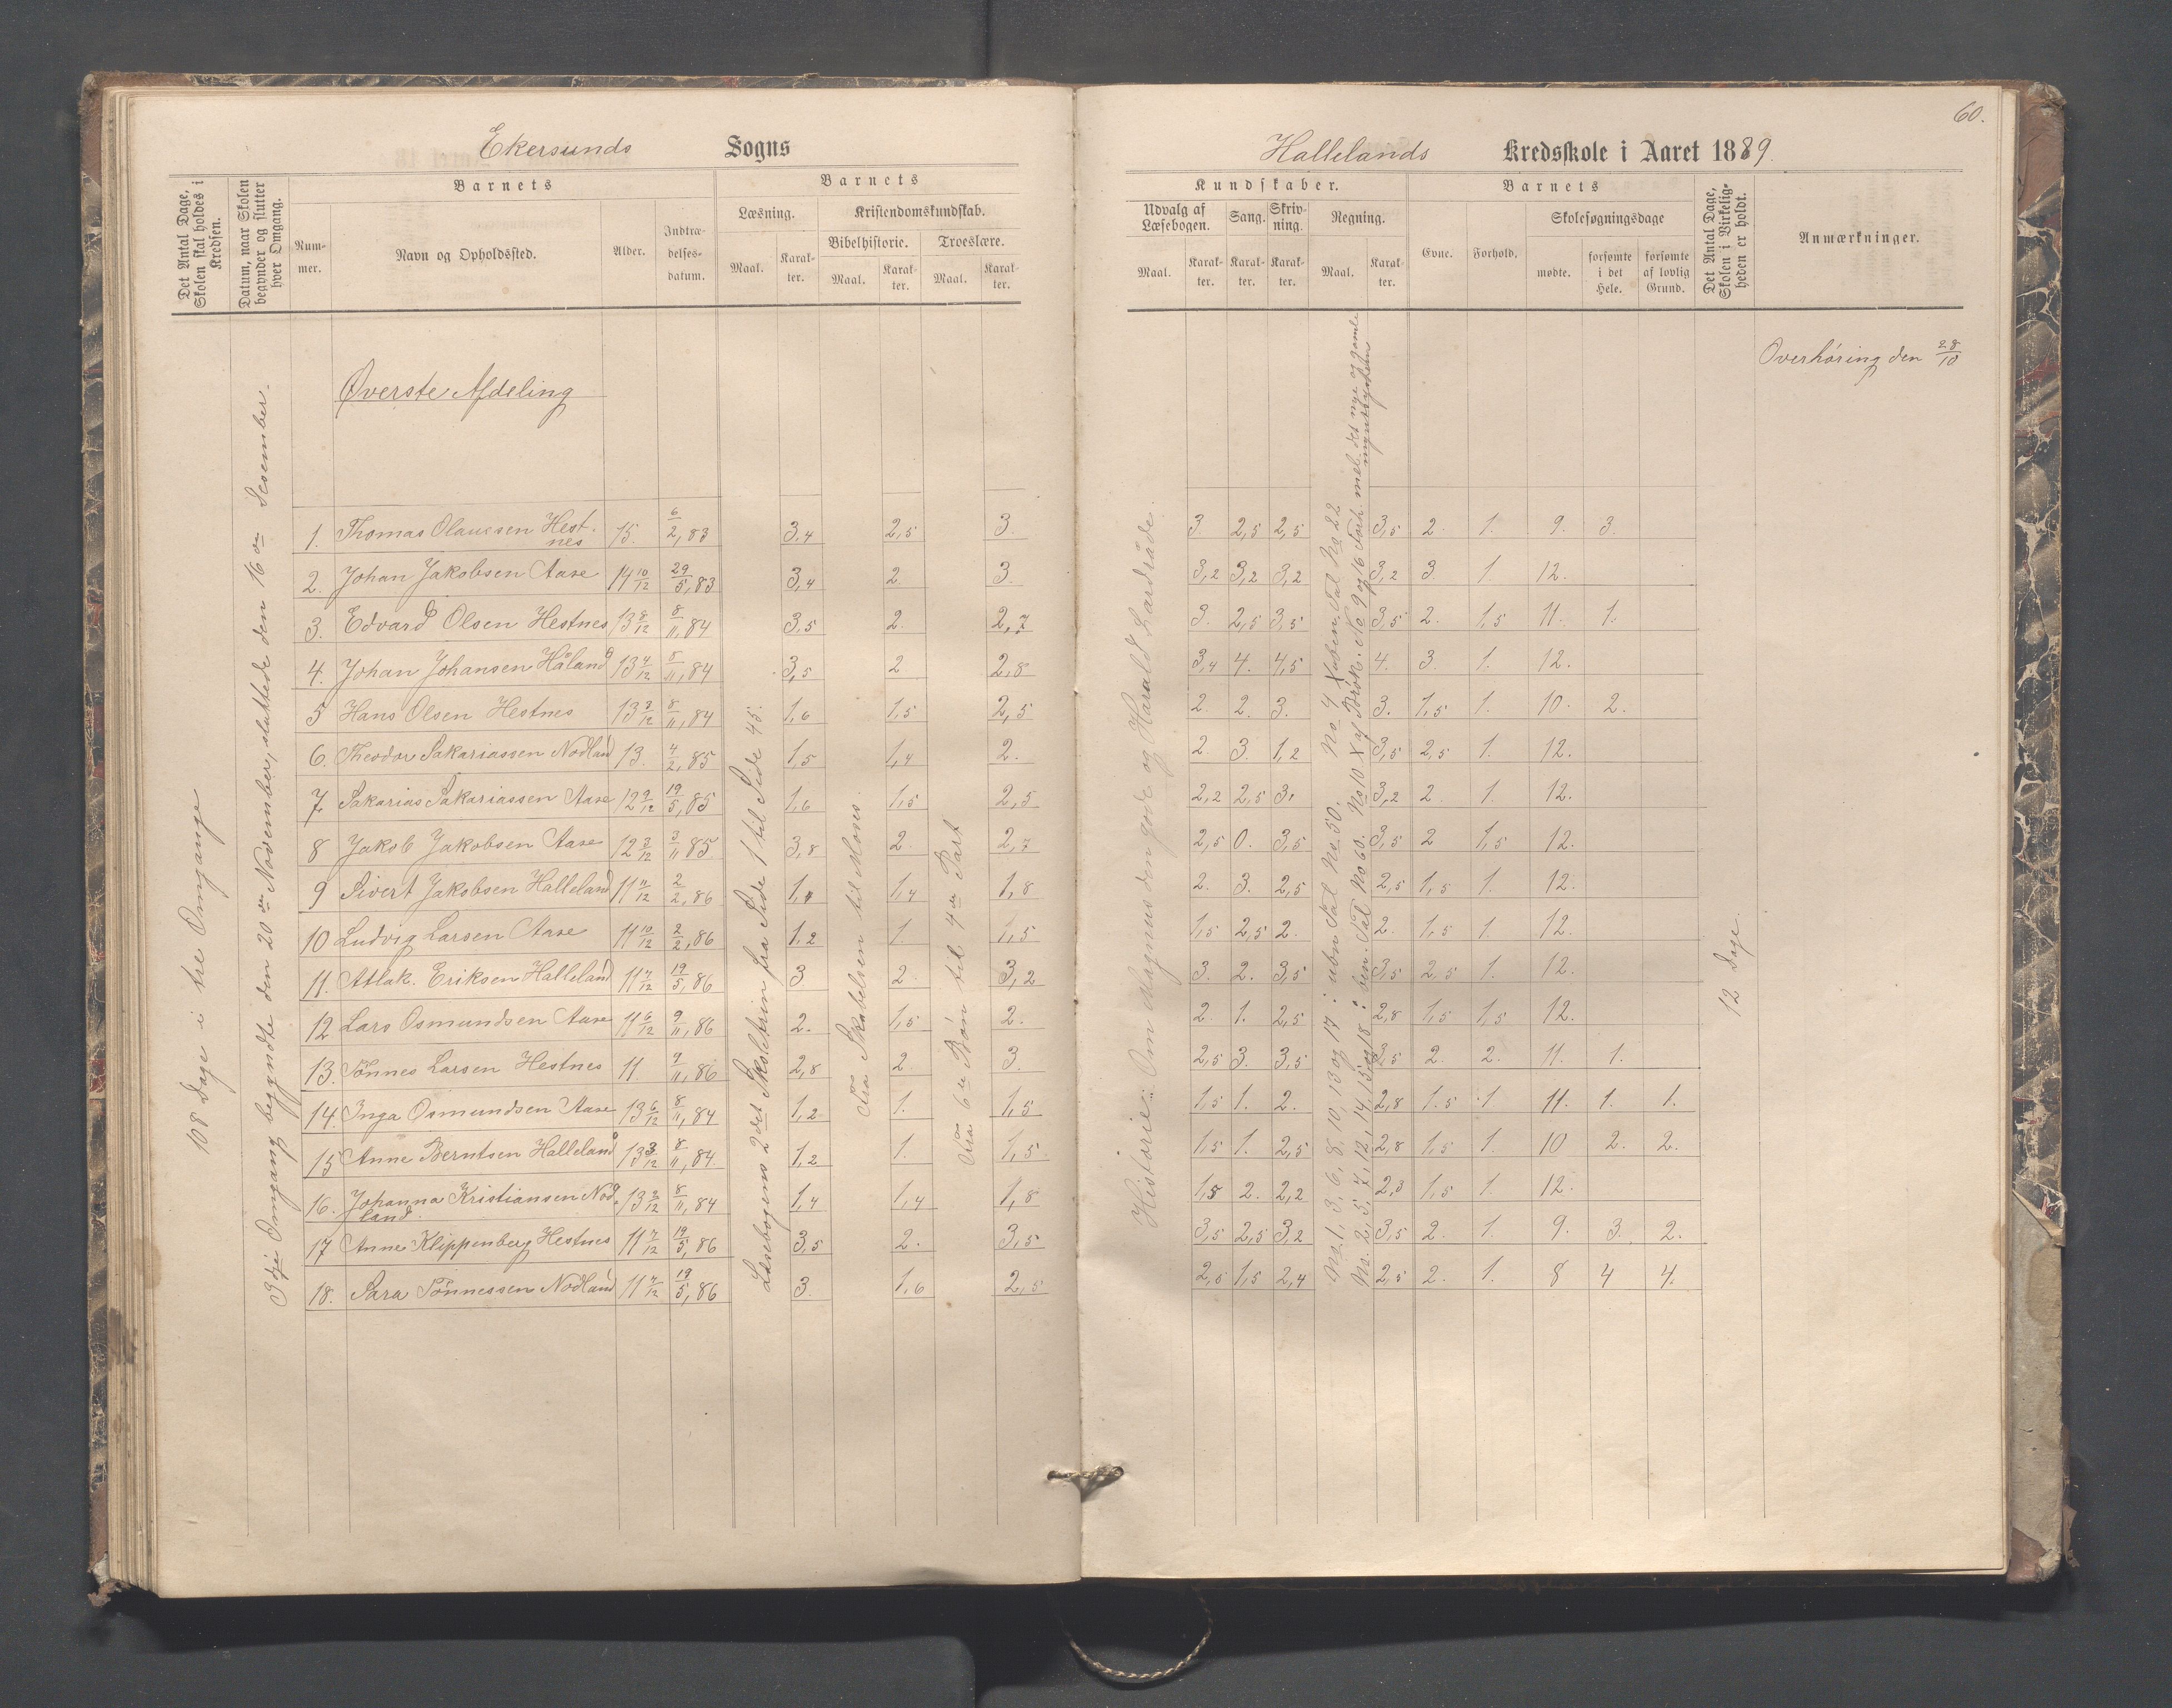 60.
Ekersunds Sogns
Hallelands Kredsskole i Aaret 1889.
Det Antal Dage, Skolen skal holdes i Kredsen.
Datum, naar Skolen begynder og slutter hver Omgang.
Barnets
Nummer.
Navn og Opholdssted.
Alder.
Indtrædelsesdatum.
Barnets
Læsning.
Maal.
Karakter.
Kristendomskundskab.
Bibelhistorie.
Maal.
Karakter.
Troeslære.
Maal.
Karakter.
Kundskaber.
Udvalg af Læsebogen.
Maal.
Karakter.
Sang.
Karakter.
Skrivning.
Karakter.
Regning.
Maal.
Karakter.
Barnets
Evne.
Forhold.
Skolesøgningsdage
mødte.
forsømte i det Hele.
forsømte af lovlig Grund.
Det Antal Dage, Skolen i Virkeligheden er holdt.
Anmærkninger.
Overhøring den 28/10
Øverste Afdeling
108 Dage i tre Omgange
3dje Omgang begyndte den 20de November, sluttede den 16de Desember.
Læsebogens 2det Skoletrin fra Side 1 til Side 45.
Fra Skabelsen til Moses.
Fra 6te Bøn til 4de Part
Historie: Om Magnus den gode og Harald Hardraade.
No 1, 3, 6, 8, 10, 13 og 17 : ubn Tal No 50.
No. 2, 5, 7, 12, 14, 15 og 18 : ben. Tal No 60.
12 Dage.
1. Thomas Olausen Hestnes 15. 6/2, 83 3,4 2,5 3. 3 2,5 2,5 3,5 2. 1. 9. 3.
2. Johan Jakobsen Aase 14 10/12 29/5, 83 3,4 2. 3. 3,2 3,2 3,2 3,2 3 1 12.
3. Edvard Olsen Hestnes 13 8/12 8/11, 84 3,5 2. 2,7 3. 2,5 3,5 3,5 2. 1,5 11. 1.
4. Johan Johansen Håland 13 4/12 8/11, 84 3,5 2 2,8 3,4 4. 4,5 4. 3. 1. 12.
5 Hans Olsen Hestnes 13 3/12 8/11, 84 1,6 1,5 2,5 2. 2. 3. 3. 1,5 1. 10. 2.
6. Theodor Sakariassen Nodland 13. 4/2, 85 1,5 1,4 2. 2 3. 1,2 3,5 2,5 1. 12.
7. Sakarias Sakariassen Aase 12 9/12 19/5, 85 1,6 1,5 2,5 2,2 2,5 3. 3,2 2. 1. 12.
8 Jakob Jakobsen Aase 12 3/12 3/11 85 3,8 2. 2,7 2,5 0. 3,5 3,5 2 1,5 12.
9 Sivert Jakobsen Halleland 11 11/12 2/2, 86 1,4 1,8 2. 3. 2,5 2,5 1,5 1. 12.
10 Ludvig Larsen Aase 11 10/12 2/2, 86 1,2 1. 1,5 1,5 2,5 2. 2. 1,5 1. 12.
11. Atlak. Eriksen Halleland 11 7/12 19/5, 86 3 2. 3,2 3. 2. 3,5 3,5 2,5 1. 12.
12 Lars Osmundsen Aase 11 6/12 9/11, 86 2. 1,5 2. 2. 1. 2,5 2,8 1,5 1,5 12.
13. Tönnes Larsen Hestnes 11. 9/11, 86 2,8 2. 3. 2,5 3. 3,5 3,5 2. 2. 11. 1.
14. Inga Osmundsen Aase 13 6/12 8/11, 84 1,2 1. 1,5 1,5 1. 2. 2,8 1.5 1. 11. 1. 1.
15 Anne Berntsen Halleland 13 3/12 8/11, 84. 1,2 1. 1,5 1,5 1. 2,5 2,8 1,5 1. 10 2. 2.
16. Johanna Kristiansen Nodland. 13 2/12 8/11, 84 1,4 1,4 1,8 1,8 2. 2,2 2,3 1,5 1. 12.
17 Anne Klippenberg Hestnes 11 7/12 19/5, 86 3,5 2. 3,5 3,5 2,5 3,2 3,5 2. 1. 9. 3. 2.
18. Sara Tönnessen Nodland 11 4/12 19/5, 86 3. 1,6 2,5 2,5 1,5 2,4 2,5 2. 1. 8 4 4.